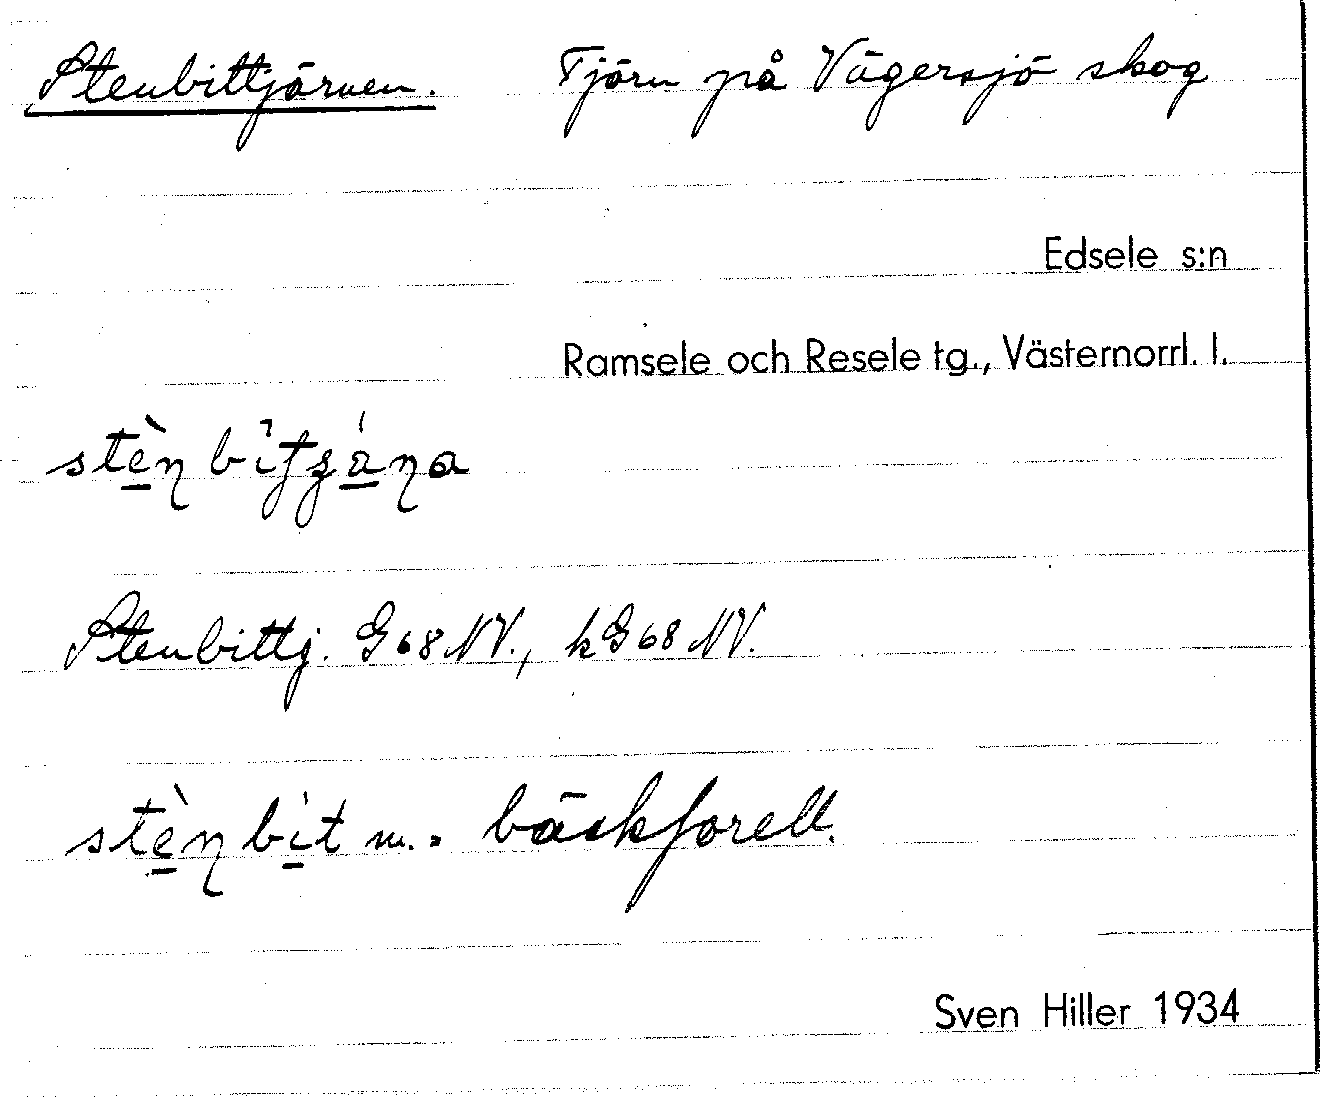 Stenbittjärnen. Tjärn på Vägersjö skog
Edsele s:n
Ramsele och Resele tg., Västernorrl. l.
Stenbittj. G68NV., kG68NV.
stèn bit m. = bäckforell.
Sven Hiller 1934